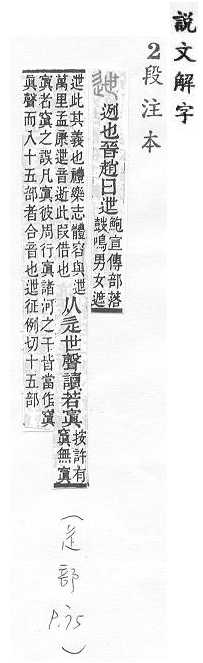 說文解字
2 段注本
迾也晉趙曰迣 鮑宣傳部落
鼓鳴男女遮
迣此其義也禮樂志體容與迣
萬里孟康迣音逝此叚借也
从辵世聲讀若寘 按許有
窴無寘
寘者窴之誤凡寘彼周行寘諸河之干皆當作窴
窴聲而入十五部者合音也迣征例切十五部
(辵部 P.75)